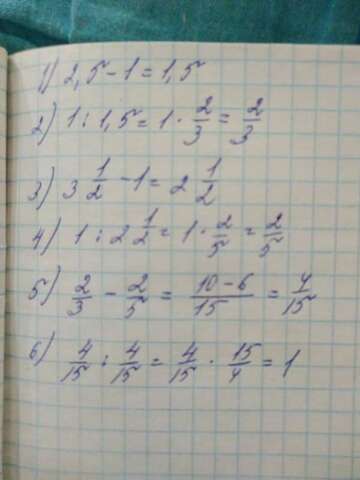 1) 2,5 - 1 = 1,5
2) 1 : 1,5 = 1 · 2/3 = 2/3
3) 3 1/2 - 1 = 2 1/2
4) 1 : 2 1/2 = 1 · 2/5 = 2/5
5) 2/3 - 2/5 = (10-6)/15 = 4/15
6) 4/15 : 4/15 = 4/15 · 15/4 = 1